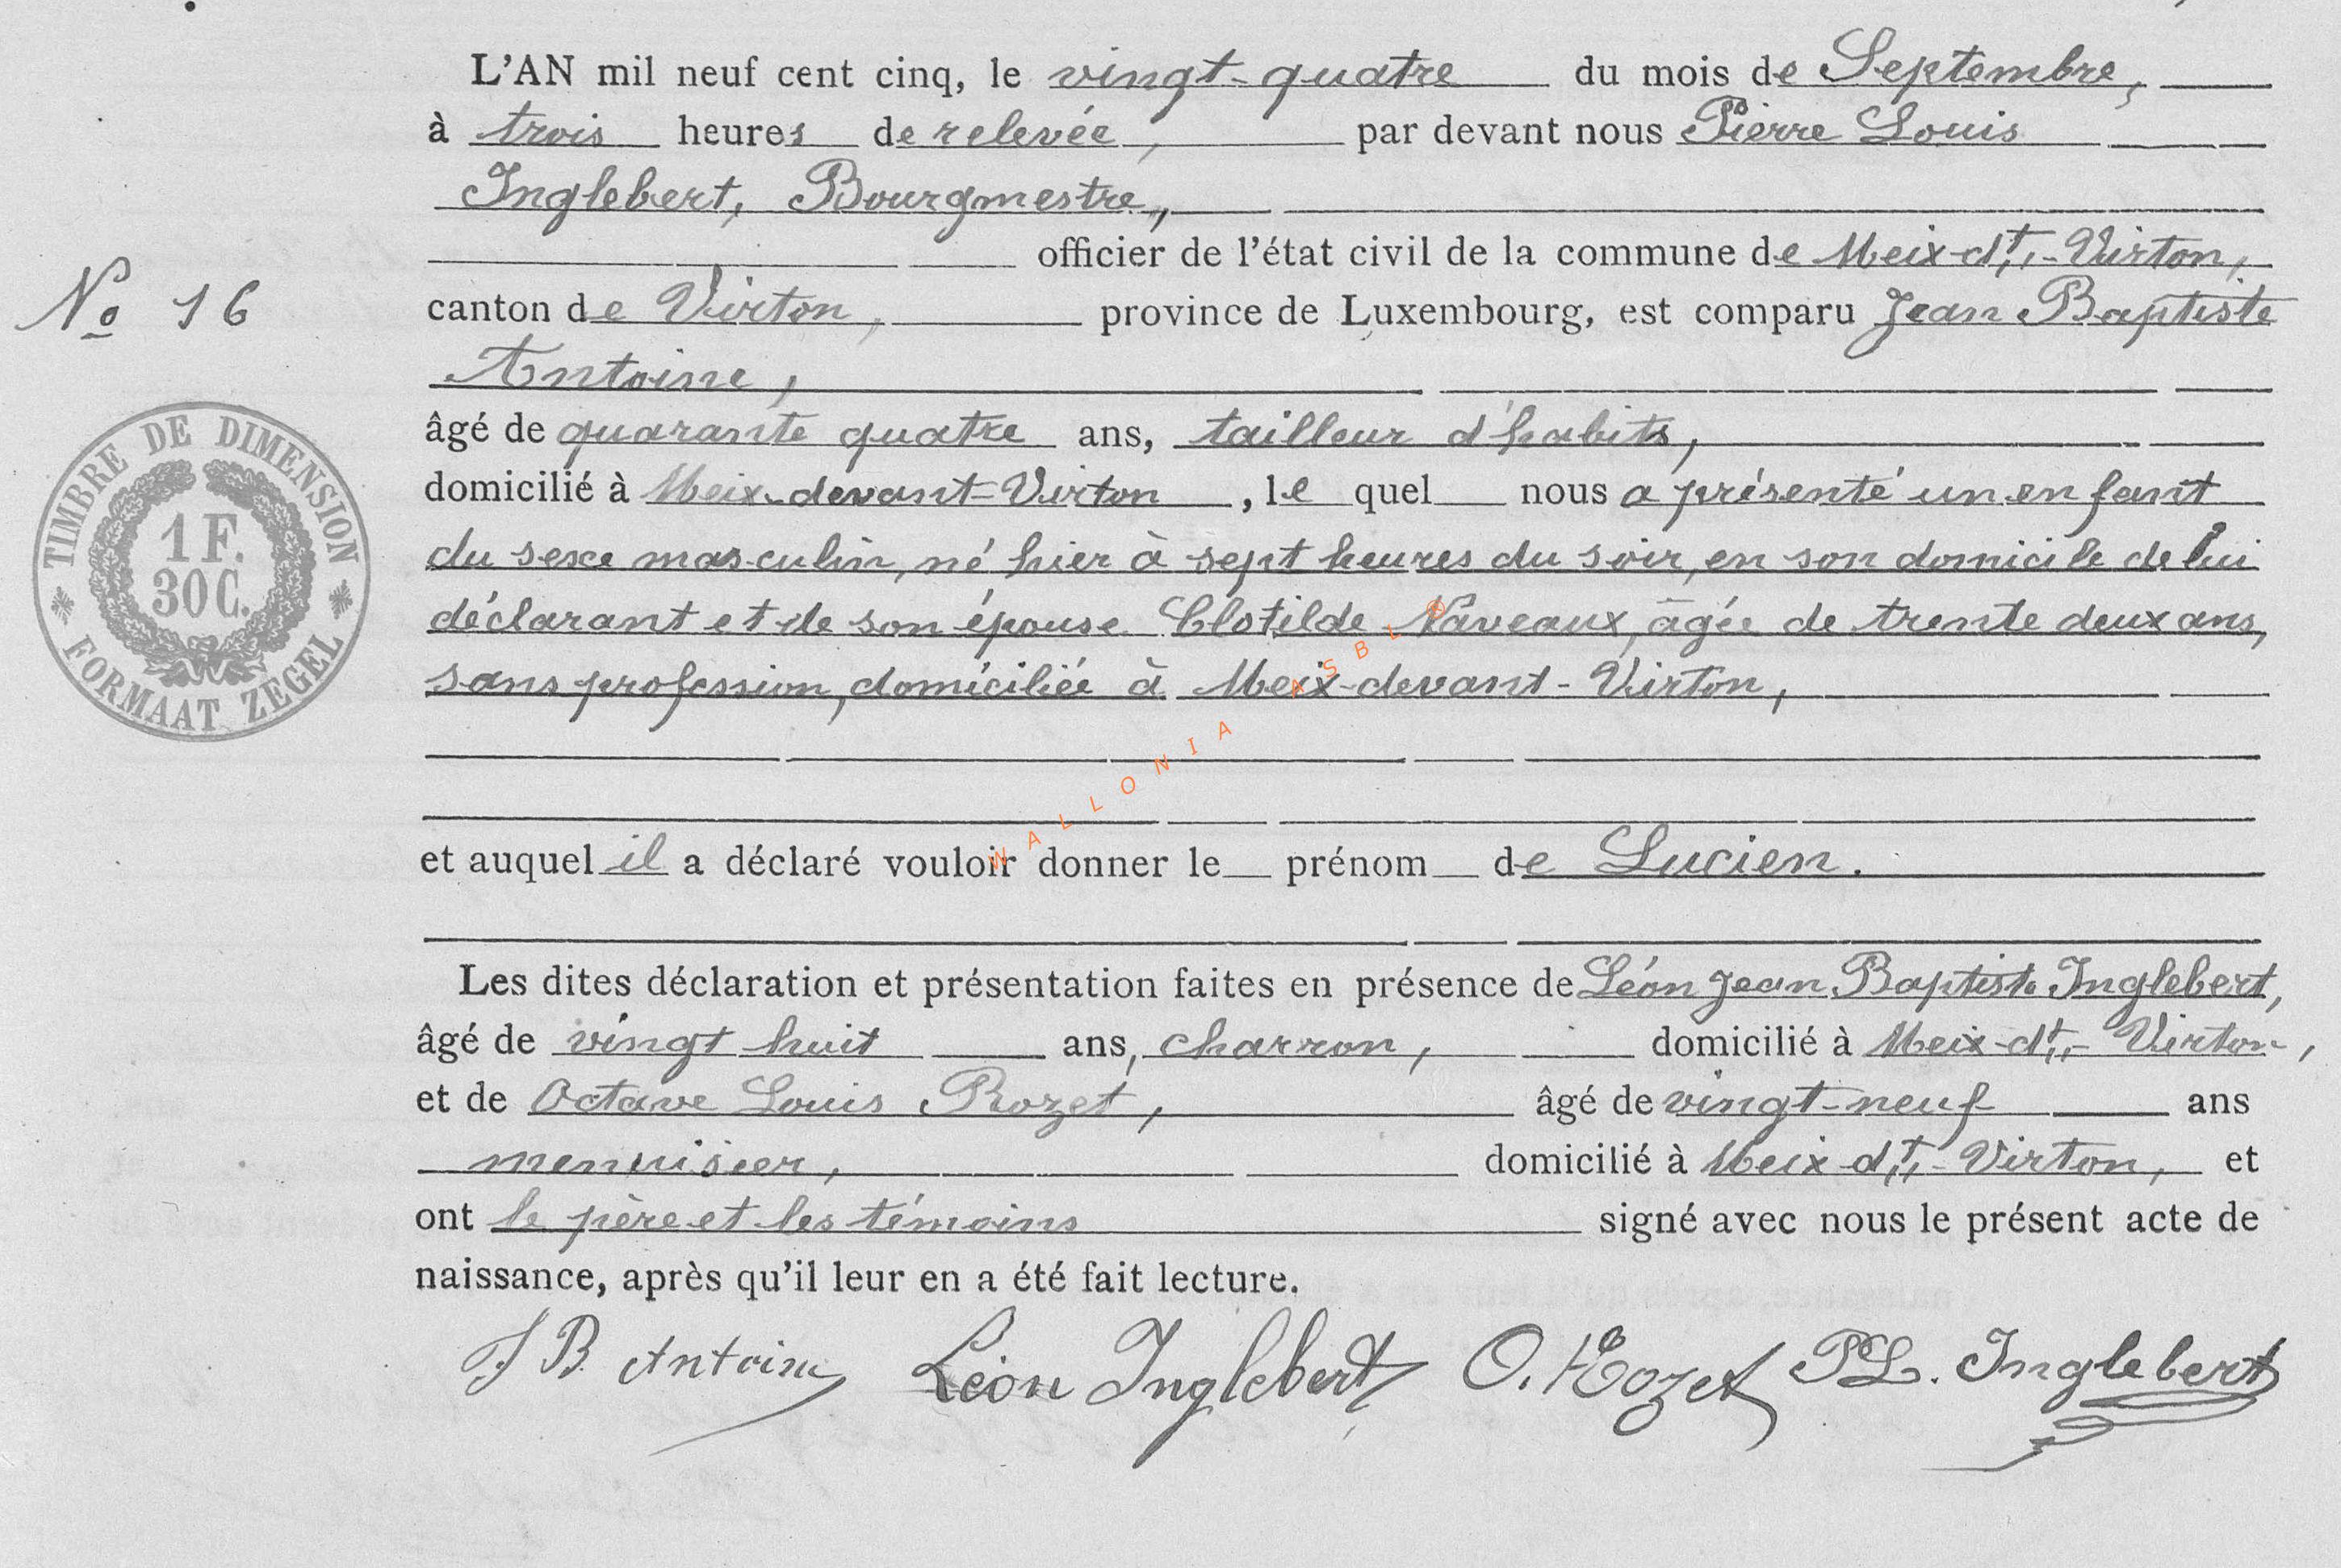 L'AN mil neuf cent cinq, le vingt-quatre du mois de Septembre,
à trois heures de relevée, par devant nous Pierre Louis
Inglebert, Bourgmestre,
officier de l'état civil de la commune de Meix-dt,-Virton,
No 16
canton de Virton, province de Luxembourg, est comparu Jean Baptiste
Antoine,
âgé de quarante quatre ans, tailleur d'habits,
domicilié à Meix-devant-Virton, le quel nous a présenté un enfant
du sexe masculin, né hier à sept heures du soir, en son domicile de lui
déclarant et de son épouse Clotilde Naveaux, âgée de trente deux ans,
sans profession, domiciliée à Meix-devant-Virton,
et auquel il a déclaré vouloir donner le prénom de Lucien.
Les dites déclaration et présentation faites en présence de Léon Jean Baptiste Inglebert,
âgé de vingt huit ans, charron, domicilié à Meix-dt,-Virton,
et de Octave Louis Rozet, âgé de vingt-neuf ans
menuisier, domicilié à Meix-dt,-Virton, et
ont le père et les témoins signé avec nous le présent acte de
naissance, après qu'il leur en a été fait lecture.
J B Antoine Léon Inglebert O. Rozet PL. Inglebert
TIMBRE DE DIMENSION
1 F.
30 C.
FORMAAT ZEGEL
WALLONIA ASBL ®